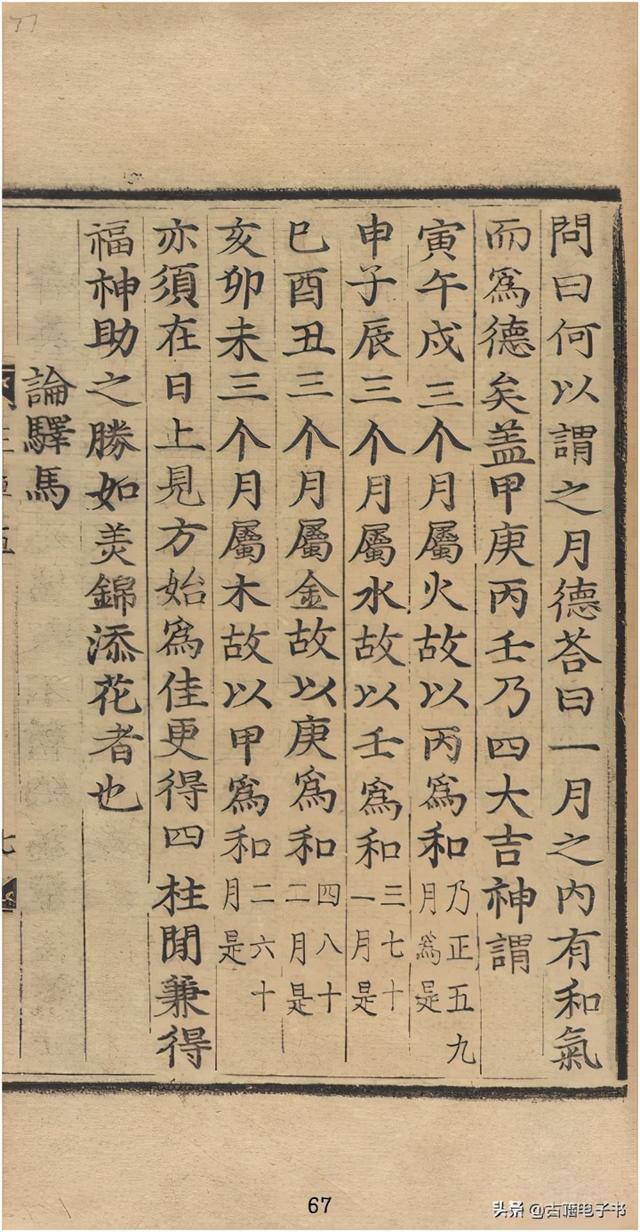 問曰何以謂之月德荅曰一月之內有和氣
而爲德矣盖甲庚丙壬乃四大吉神謂
寅午戍三个月屬火故以丙爲和乃正五九月爲是
申子辰三个月屬水故以壬爲和三七十一月是
巳酉丑三个月屬金故以庚爲和四八十二月是
亥卯未三个月屬木故以甲爲和二六十月是
亦須在日上見方始爲佳更得四柱閒兼得
福神助之勝如羙錦添花者也
論驛馬
七
67
头条 @古籍电子书